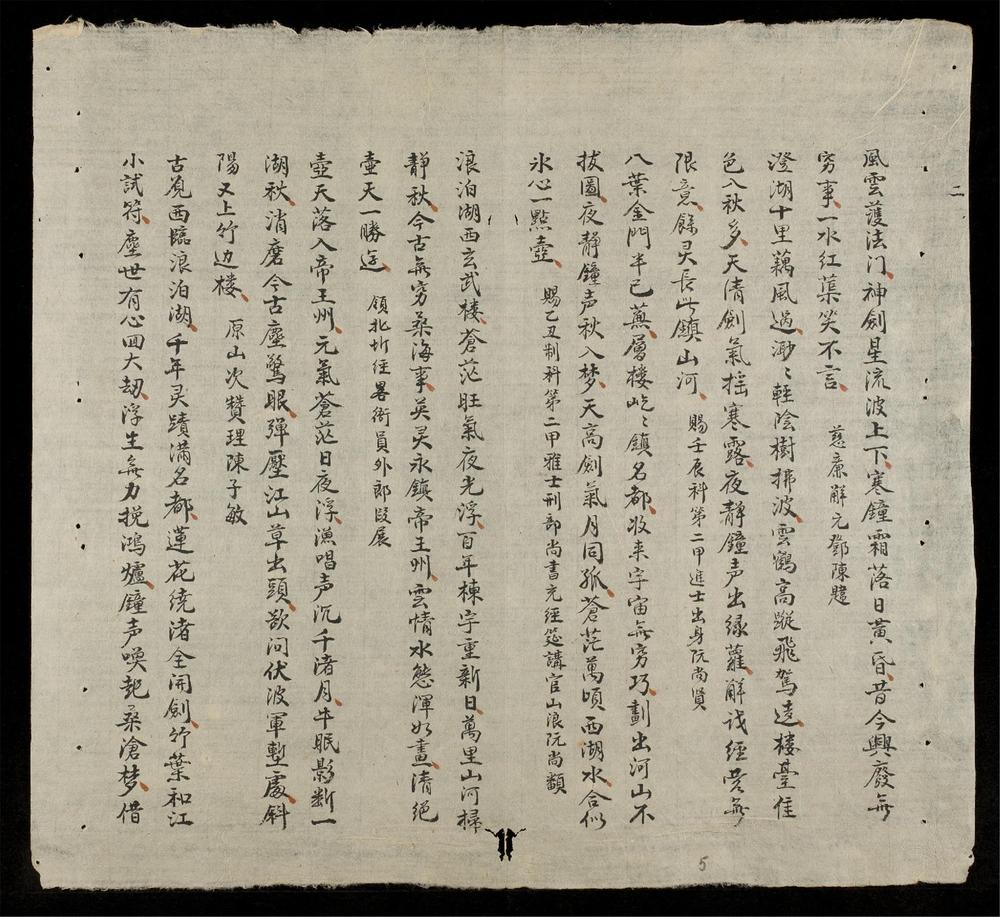 二
風雲護法门神劍星流波上下寒鐘霜落日黃昏昔今興廢無
穷事一水紅蕖笑不言 慈廉解元鄧陳
澄湖十里藕風過渺〻輕陰樹拂波雲鶴高蹤飛駕遠楼臺佳
色入秋多天清劍氣摇寒露夜靜鐘声出綠蘿解伐經營無
限意餘灵長此鎮山河 賜壬辰科第二甲進士出身阮尚賢
八葉金門半已蕪層楼屹〻鎮名都收来宇宙無穷巧劃出河山不
拔圖夜靜鐘声秋入梦天高劍氣月同孤蒼茫萬頃西湖水合似
氷心一點壺 賜乙丑制科第二甲雅士刑部尚書充經筵講官山浪阮尚纇
浪泊湖西玄武楼蒼茫旺氣夜光浮百年棟宇重新日萬里山河掃
靜秋今古無穷桑海事英灵永鎮帝王州雲情水態渾如畫清絕
壺天一勝 領北圻徃畧衙員外郎段展
壺天落入帝王州元氣蒼茫日夜浮漁唱声沉千渚月牛眠影断一
湖秋消磨今古塵驚眼彈壓江山草出頭欲问伏波軍塹處斜
陽又上竹边楼 原山次贊理陳子敏
古覌西臨浪泊湖千年灵蹟滿名都蓮花繞渚全開劍竹葉和江
小試符塵世有心回大刼浮生無力挽鴻爐鐘声喚起桑滄梦借
5